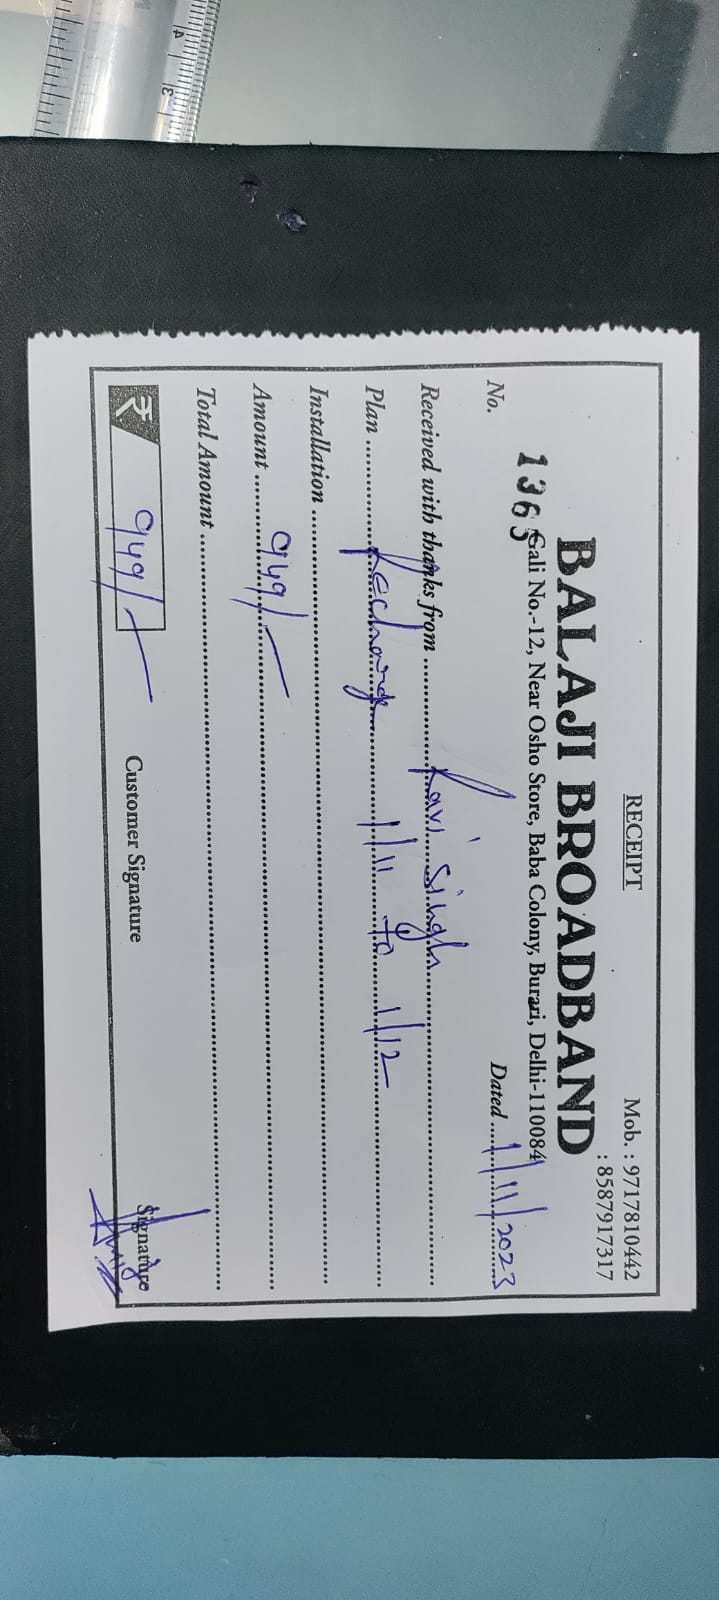 RECEIPT
Mob. : 9717810442
: 8587917317
BALAJI BROADBAND
Gali No.-12, Near Osho Store, Baba Colony, Burari, Delhi-110084
No. 1365 Dated 1/11/2023
Received with thanks from Ravi Singh
Plan Recharge 1/11 to 1/12
Installation
Amount 949/-
Total Amount
₹ 949/-
Customer Signature
Signature